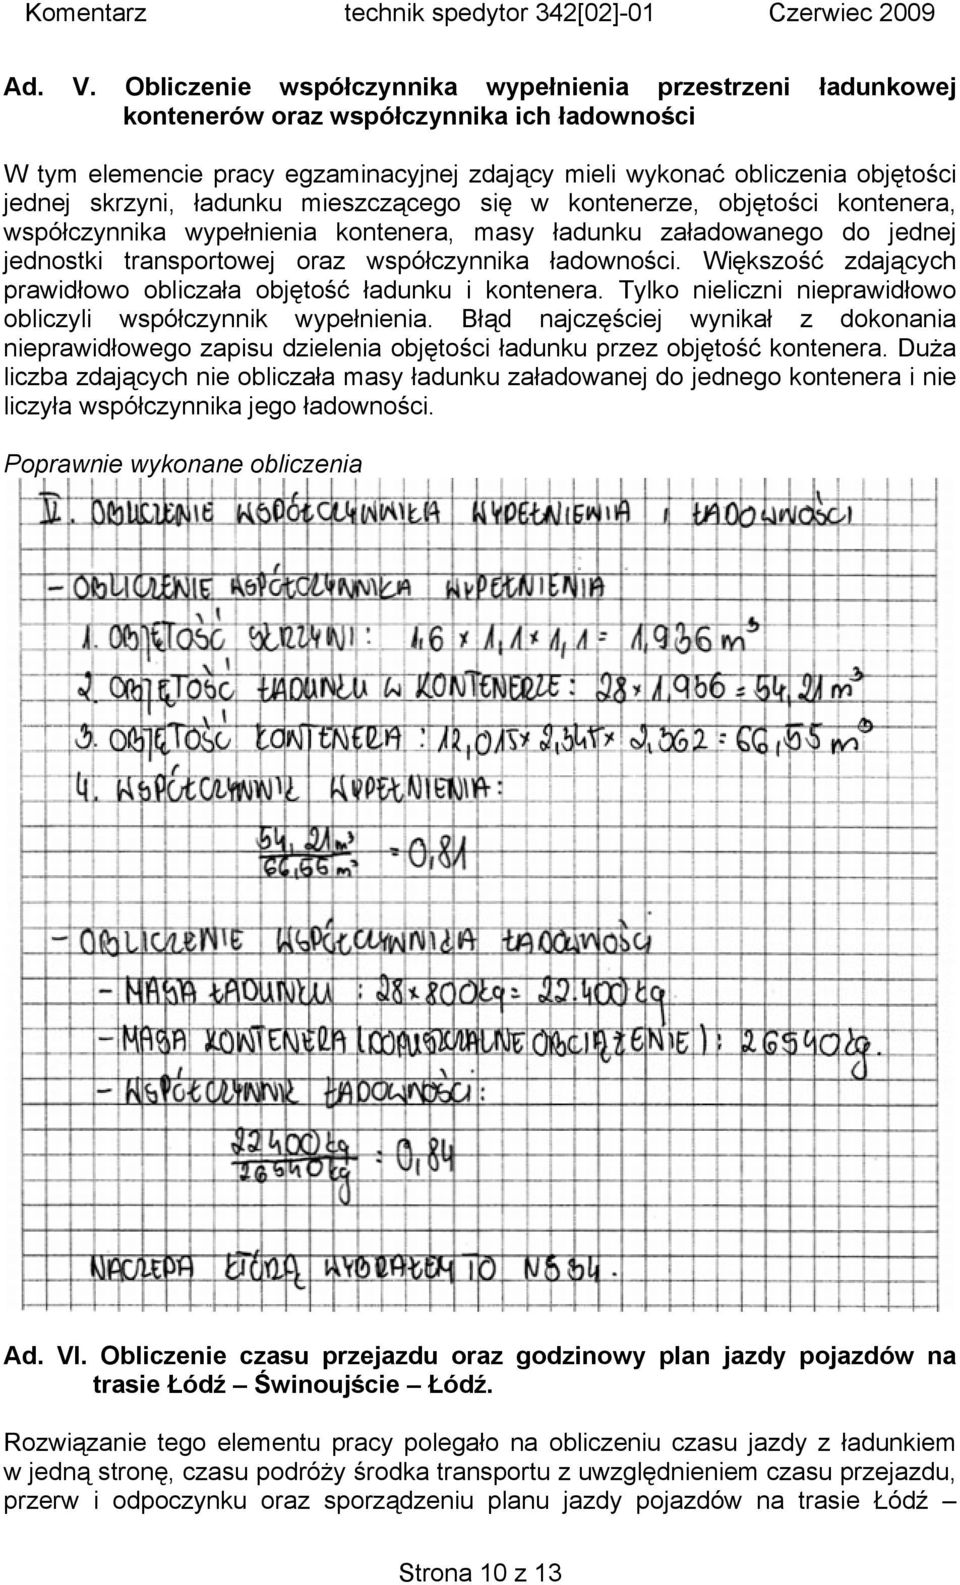 Komentarz technik spedytor 342[02]-01 Czerwiec 2009
Ad. V. Obliczenie współczynnika wypełnienia przestrzeni ładunkowej
kontenerów oraz współczynnika ich ładowności
W tym elemencie pracy egzaminacyjnej zdający mieli wykonać obliczenia objętości
jednej skrzyni, ładunku mieszczącego się w kontenerze, objętości kontenera,
współczynnika wypełnienia kontenera, masy ładunku załadowanego do jednej
jednostki transportowej oraz współczynnika ładowności. Większość zdających
prawidłowo obliczała objętość ładunku i kontenera. Tylko nieliczni nieprawidłowo
obliczyli współczynnik wypełnienia. Błąd najczęściej wynikał z dokonania
nieprawidłowego zapisu dzielenia objętości ładunku przez objętość kontenera. Duża
liczba zdających nie obliczała masy ładunku załadowanej do jednego kontenera i nie
liczyła współczynnika jego ładowności.
Poprawnie wykonane obliczenia
V. OBLICZENIE WSPÓŁCZYNNIKA WYPEŁNIENIA I ŁADOWNOŚCI
- OBLICZENIE WSPÓŁCZYNNIKA WYPEŁNIENIA
1. OBJĘTOŚĆ SKRZYNI: 1,6 x 1,1 x 1,1 = 1,936 m³
2. OBJĘTOŚĆ ŁADUNKU W KONTENERZE: 28 x 1,936 = 54,21 m³
3. OBJĘTOŚĆ KONTENERA: 12,015 x 2,345 x 2,362 = 66,55 m³
4. WSPÓŁCZYNNIK WYPEŁNIENIA:
54,21 m³
66,55 m³ = 0,81
- OBLICZENIE WSPÓŁCZYNNIKA ŁADOWNOŚCI
- MASA ŁADUNKU: 28 x 800kg = 22.400 kg
- MASA KONTENERA (DOPUSZCZALNE OBCIĄŻENIE): 26540 kg.
- WSPÓŁCZYNNIK ŁADOWNOŚCI:
22400 kg
26540 kg = 0,84
NACZEPA KTÓRĄ WYBRAŁEM TO NS34.
Ad. VI. Obliczenie czasu przejazdu oraz godzinowy plan jazdy pojazdów na
trasie Łódź – Świnoujście – Łódź.
Rozwiązanie tego elementu pracy polegało na obliczeniu czasu jazdy z ładunkiem
w jedną stronę, czasu podróży środka transportu z uwzględnieniem czasu przejazdu,
przerw i odpoczynku oraz sporządzeniu planu jazdy pojazdów na trasie Łódź –
Strona 10 z 13